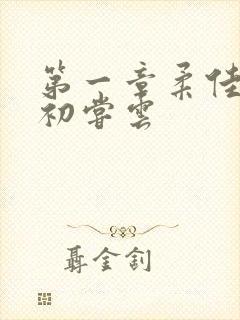 第一章柔佳
初尝云
聂金钊